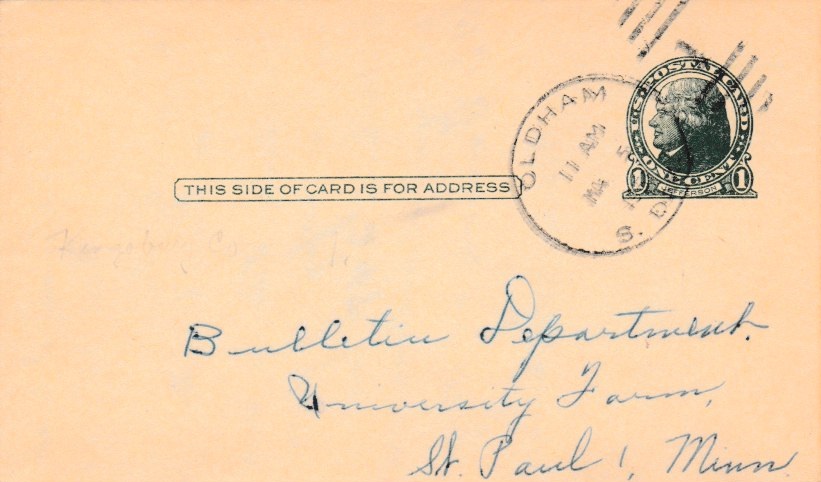 U.S. POSTAL CARD
ONE CENT
1 JEFFERSON 1
OLDHAM
11 AM
S. D.
THIS SIDE OF CARD IS FOR ADDRESS
Co
Bulletin Department.
University Farm,
St. Paul 1, Minn.